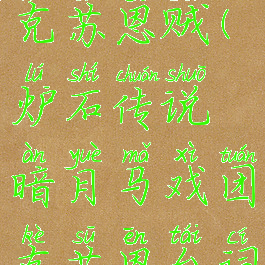 克苏恩贼(
lú shí chuán shuō
炉石传说
àn yuè mǎ xì tuán
暗月马戏团
kè sū ēn tái cí
克苏恩台词